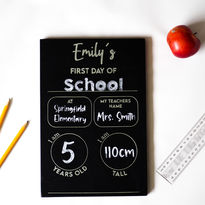 Emily's
FIRST DAY OF
School
AT
Springfield
Elementary
MY TEACHERS
NAME
Mrs. Smith
I am
5
YEARS OLD
I am
110cm
TALL